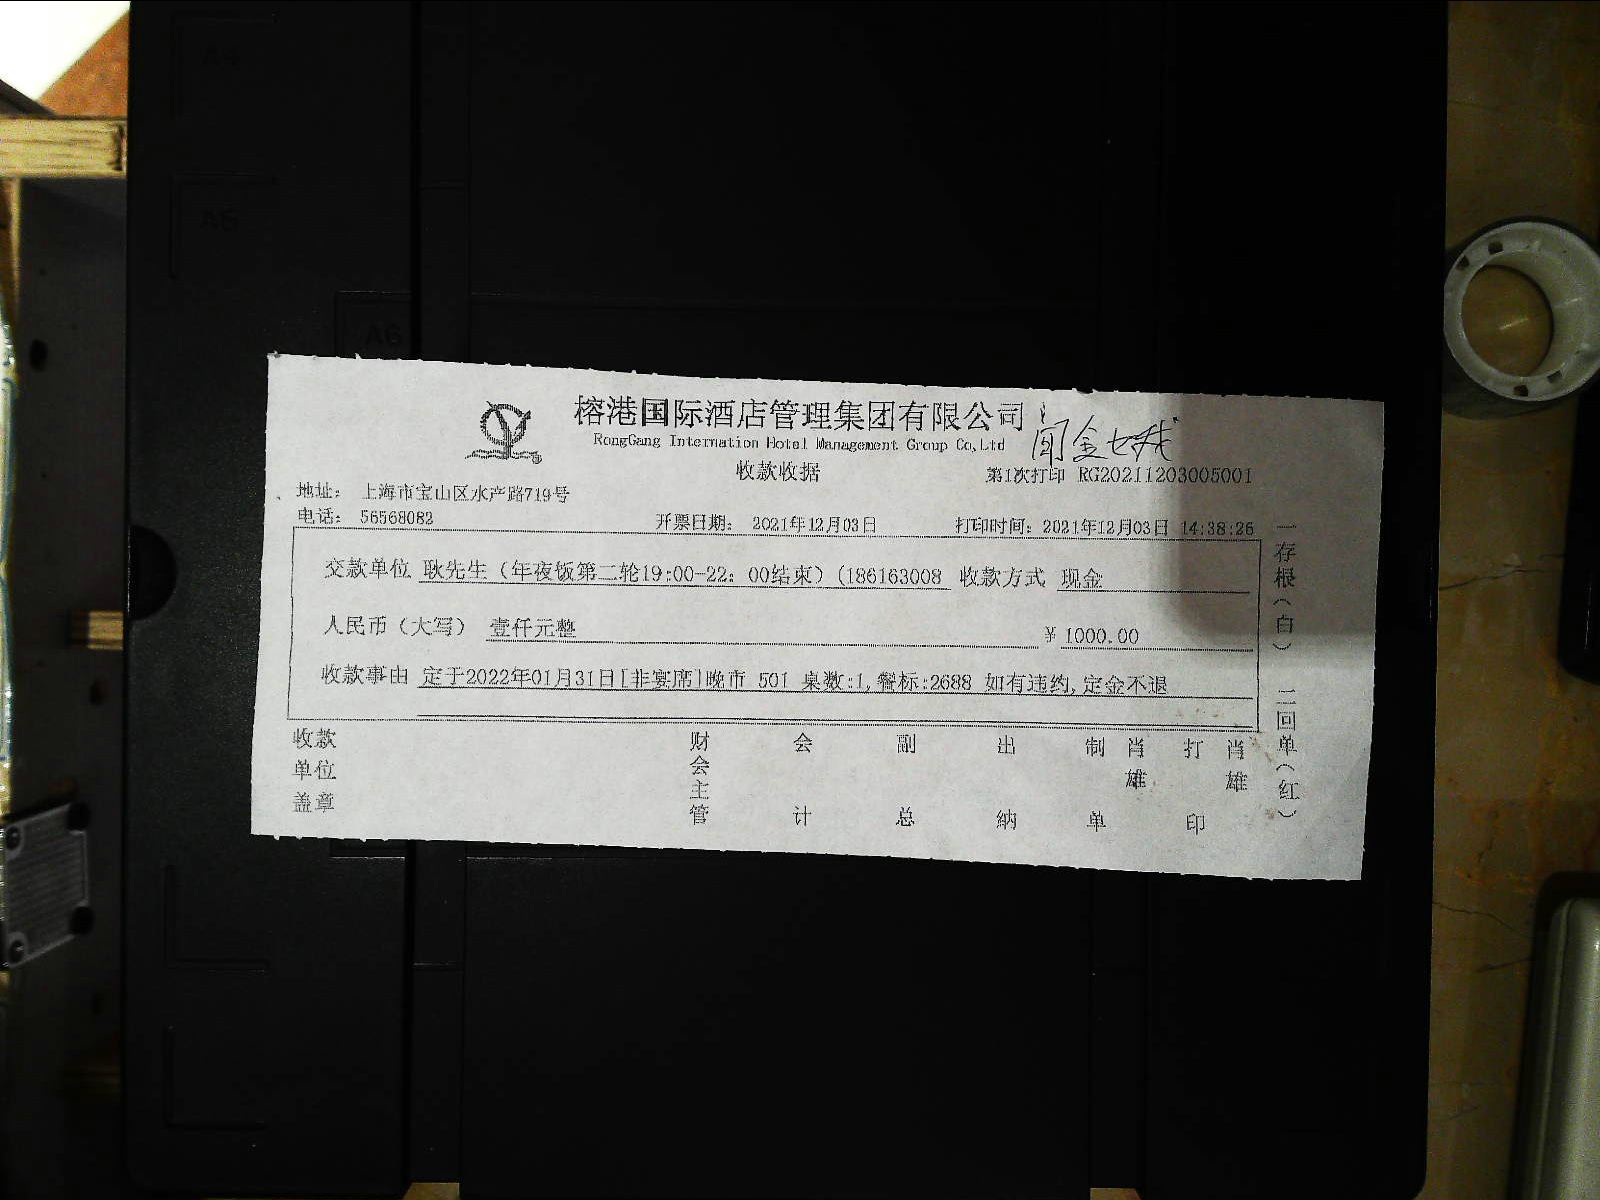 A4
A5
A6
榕港国际酒店管理集团有限公司
RongGang Internation Hotel Management Group Co,Ltd
收款收据
第1次打印 RG20211203005001
地址： 上海市宝山区水产路719号
电话： 56568082
开票日期： 2021年12月03日
打印时间：2021年12月03日 14:38:26
交款单位 耿先生（年夜饭第二轮19:00-22：00结束）(186163008 收款方式 现金
人民币（大写） 壹仟元整 ￥ 1000.00
收款事由 定于2022年01月31日[非宴席]晚市 501 桌数:1,餐标:2688 如有违约,定金不退
收款单位盖章
财会主管
会计
副总
出纳
制单
肖雄
打印
肖雄
一存根（白） 二回单（红）